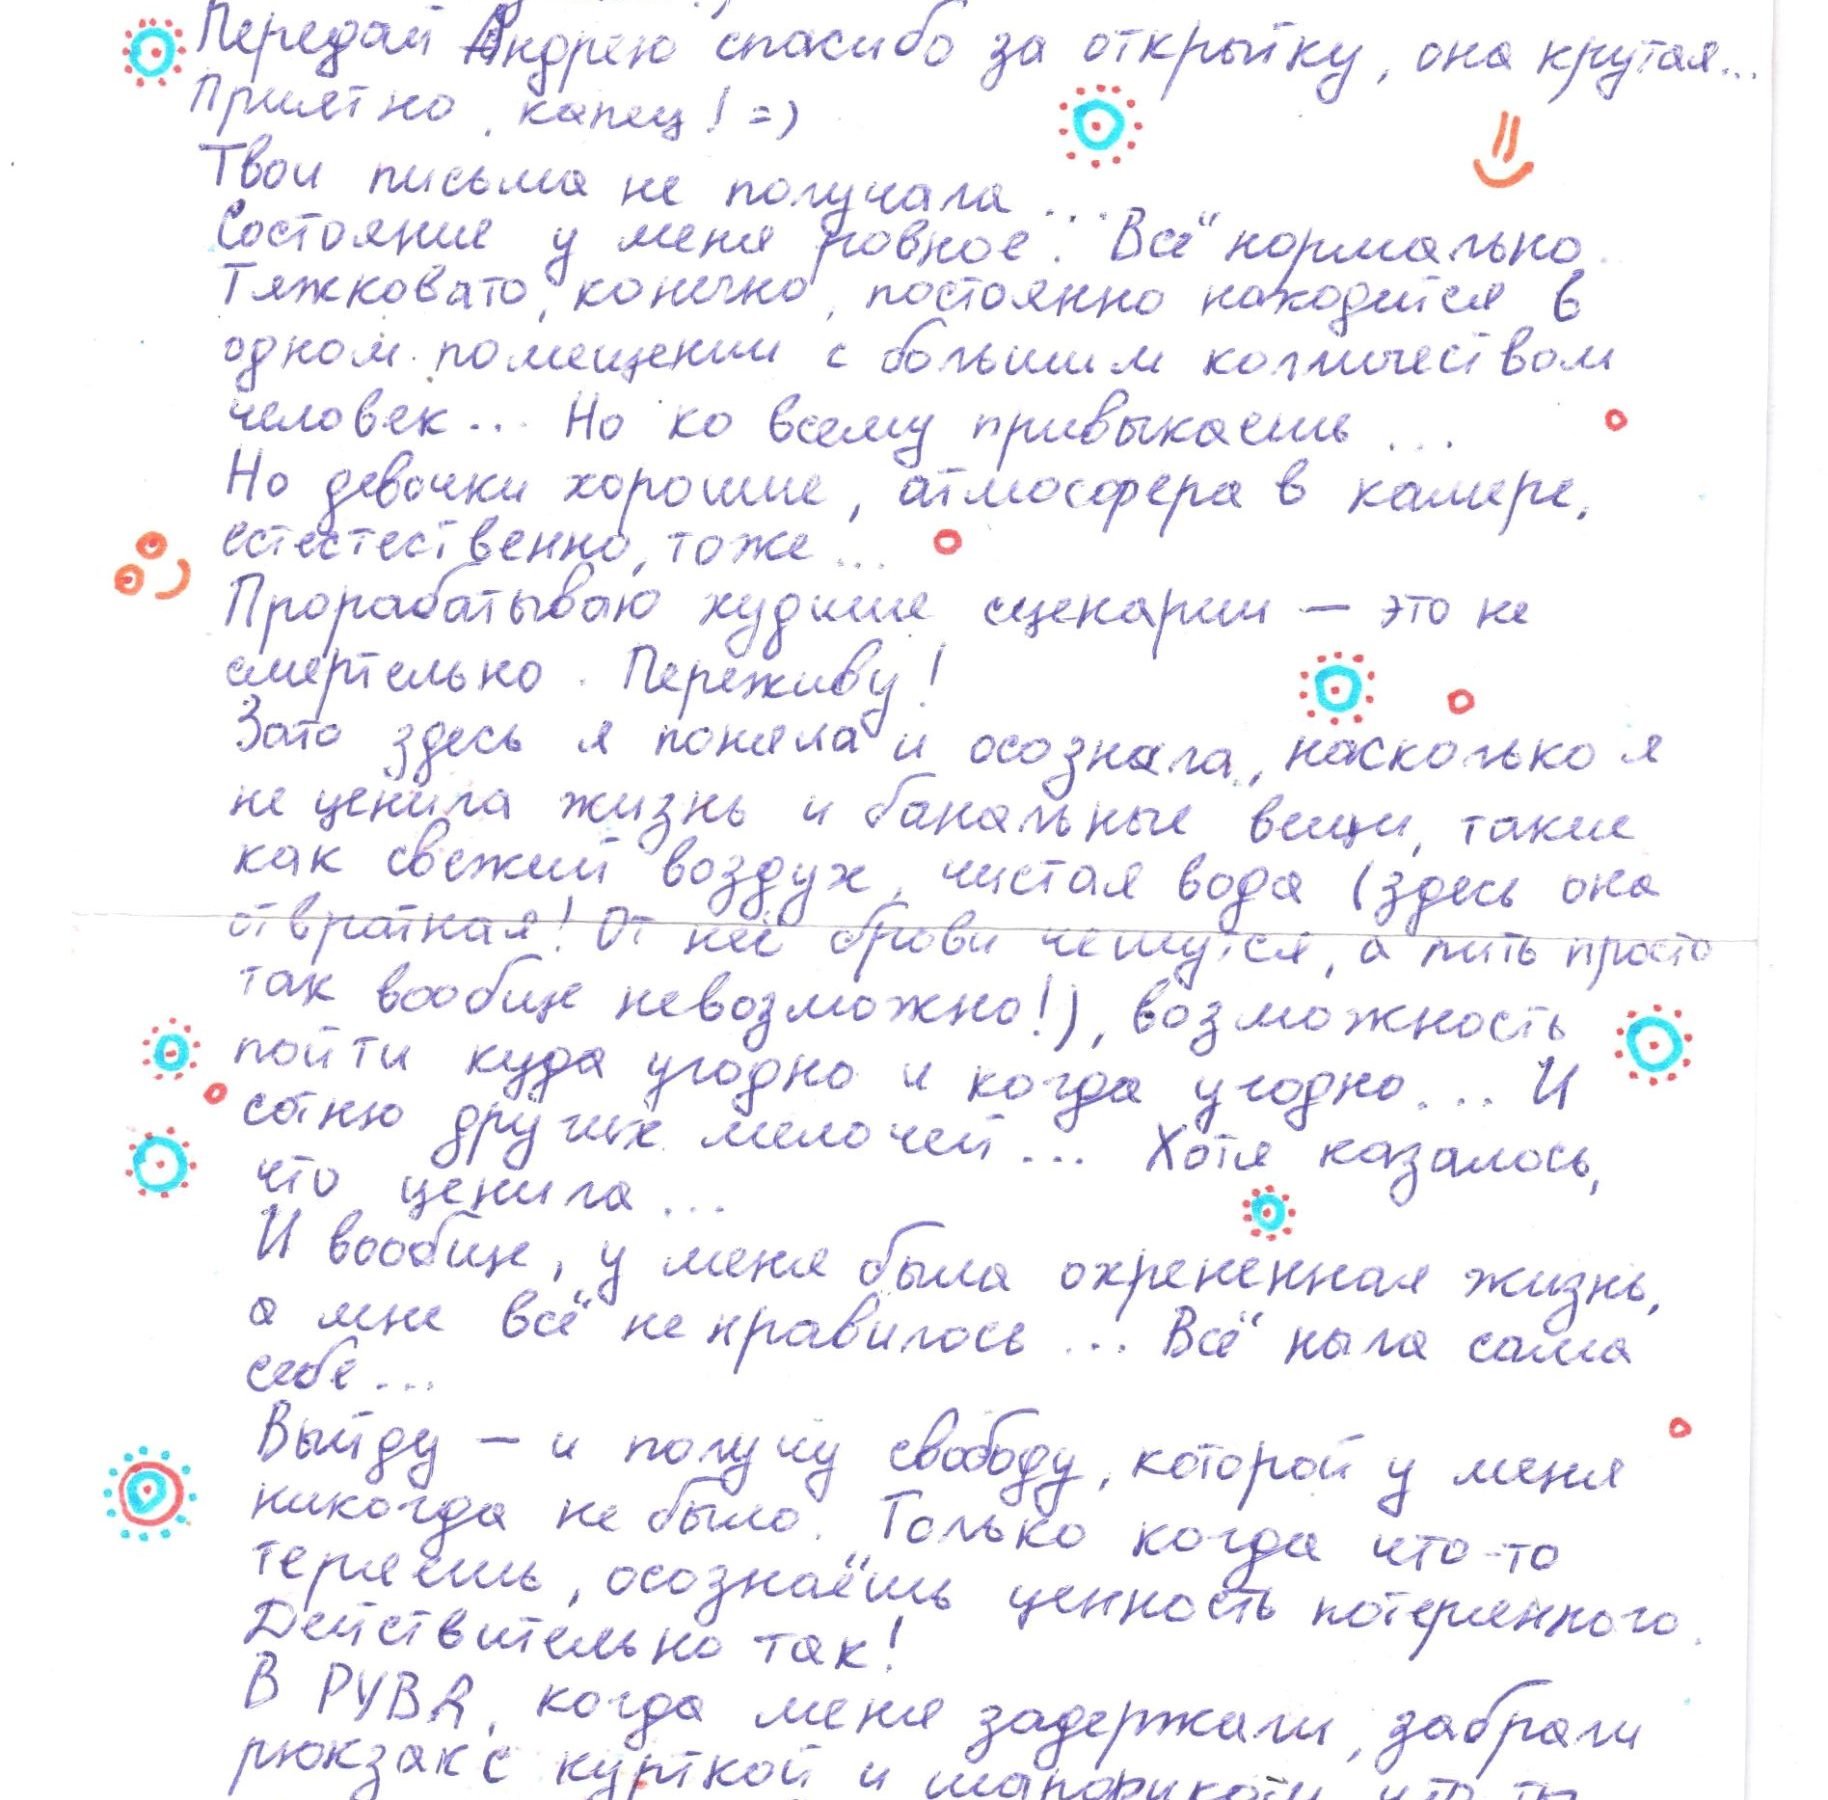 Передай Андрею спасибо за открытку, она крутая...
Приятно, капец! =)
Твои письма не получала...
Состояние у меня ровное. Всё нормально.
Тяжковато, конечно, постоянно находится в
одном помещении с большим количеством
человек... Но ко всему привыкаешь...
Но девочки хорошие, атмосфера в камере,
естественно, тоже...
Прорабатываю худшие сценарии – это не
смертельно. Переживу!
Зато здесь я поняла и осознала, насколько я
не ценила жизнь и банальные вещи, такие
как свежий воздух, чистая вода (здесь она
отвратная! От неё брови чешутся, а пить просто
так вообще невозможно!), возможность
пойти куда угодно и когда угодно... И
сотню других мелочей... Хотя казалось,
что ценила...
И вообще, у меня была охрененная жизнь,
а мне всё не нравилось... Всё ныла сама
себе...
Выйду – и получу свободу, которой у меня
никогда не было. Только когда что-то
теряешь, осознаёшь ценность потерянного.
Действительно так!
В РУВД, когда меня задержали, забрали
рюкзак с курткой и